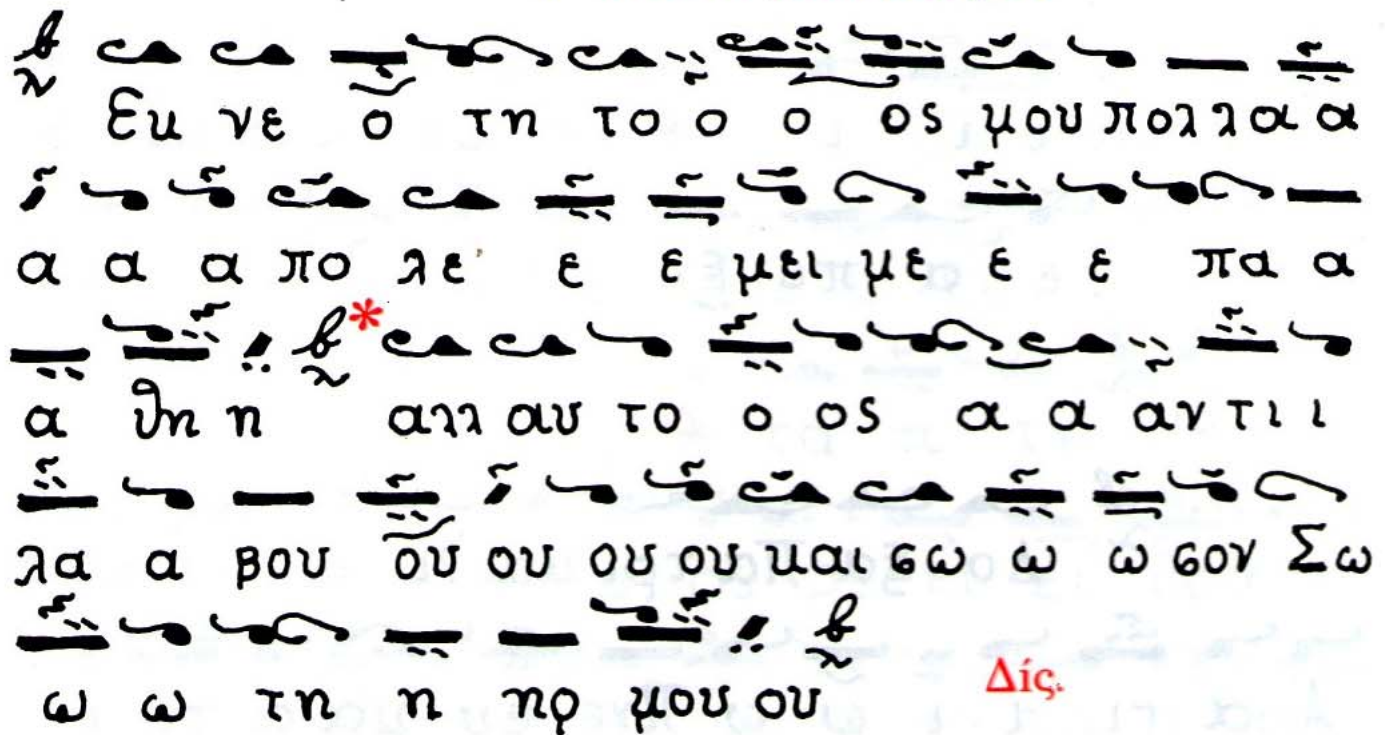 Εκ νε ο τη το ο ο ος μου πολλα α
α α α πο λε ε ε μει με ε ε πα α
α θη η * αλλ αυ το ο ος α α αν τι ι
λα α βου ου ου ου ου και σω ω ω σον Σω
ω ω τη η ηρ μου ου Δίς.